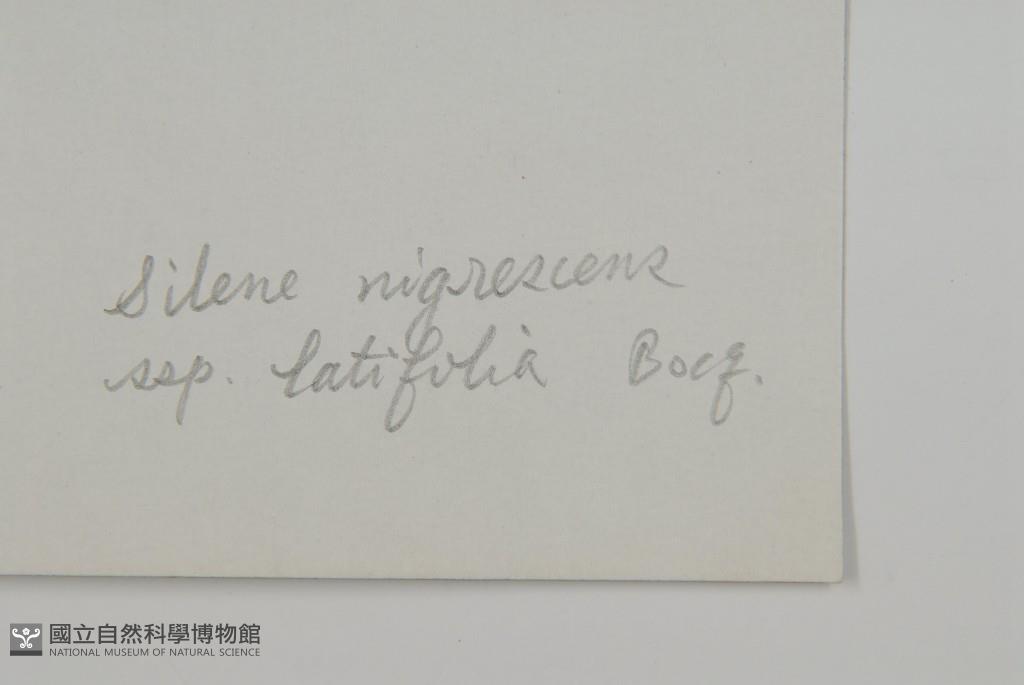 Silene nigrescens
ssp. latifolia Bocq.
國立自然科學博物館
NATIONAL MUSEUM OF NATURAL SCIENCE